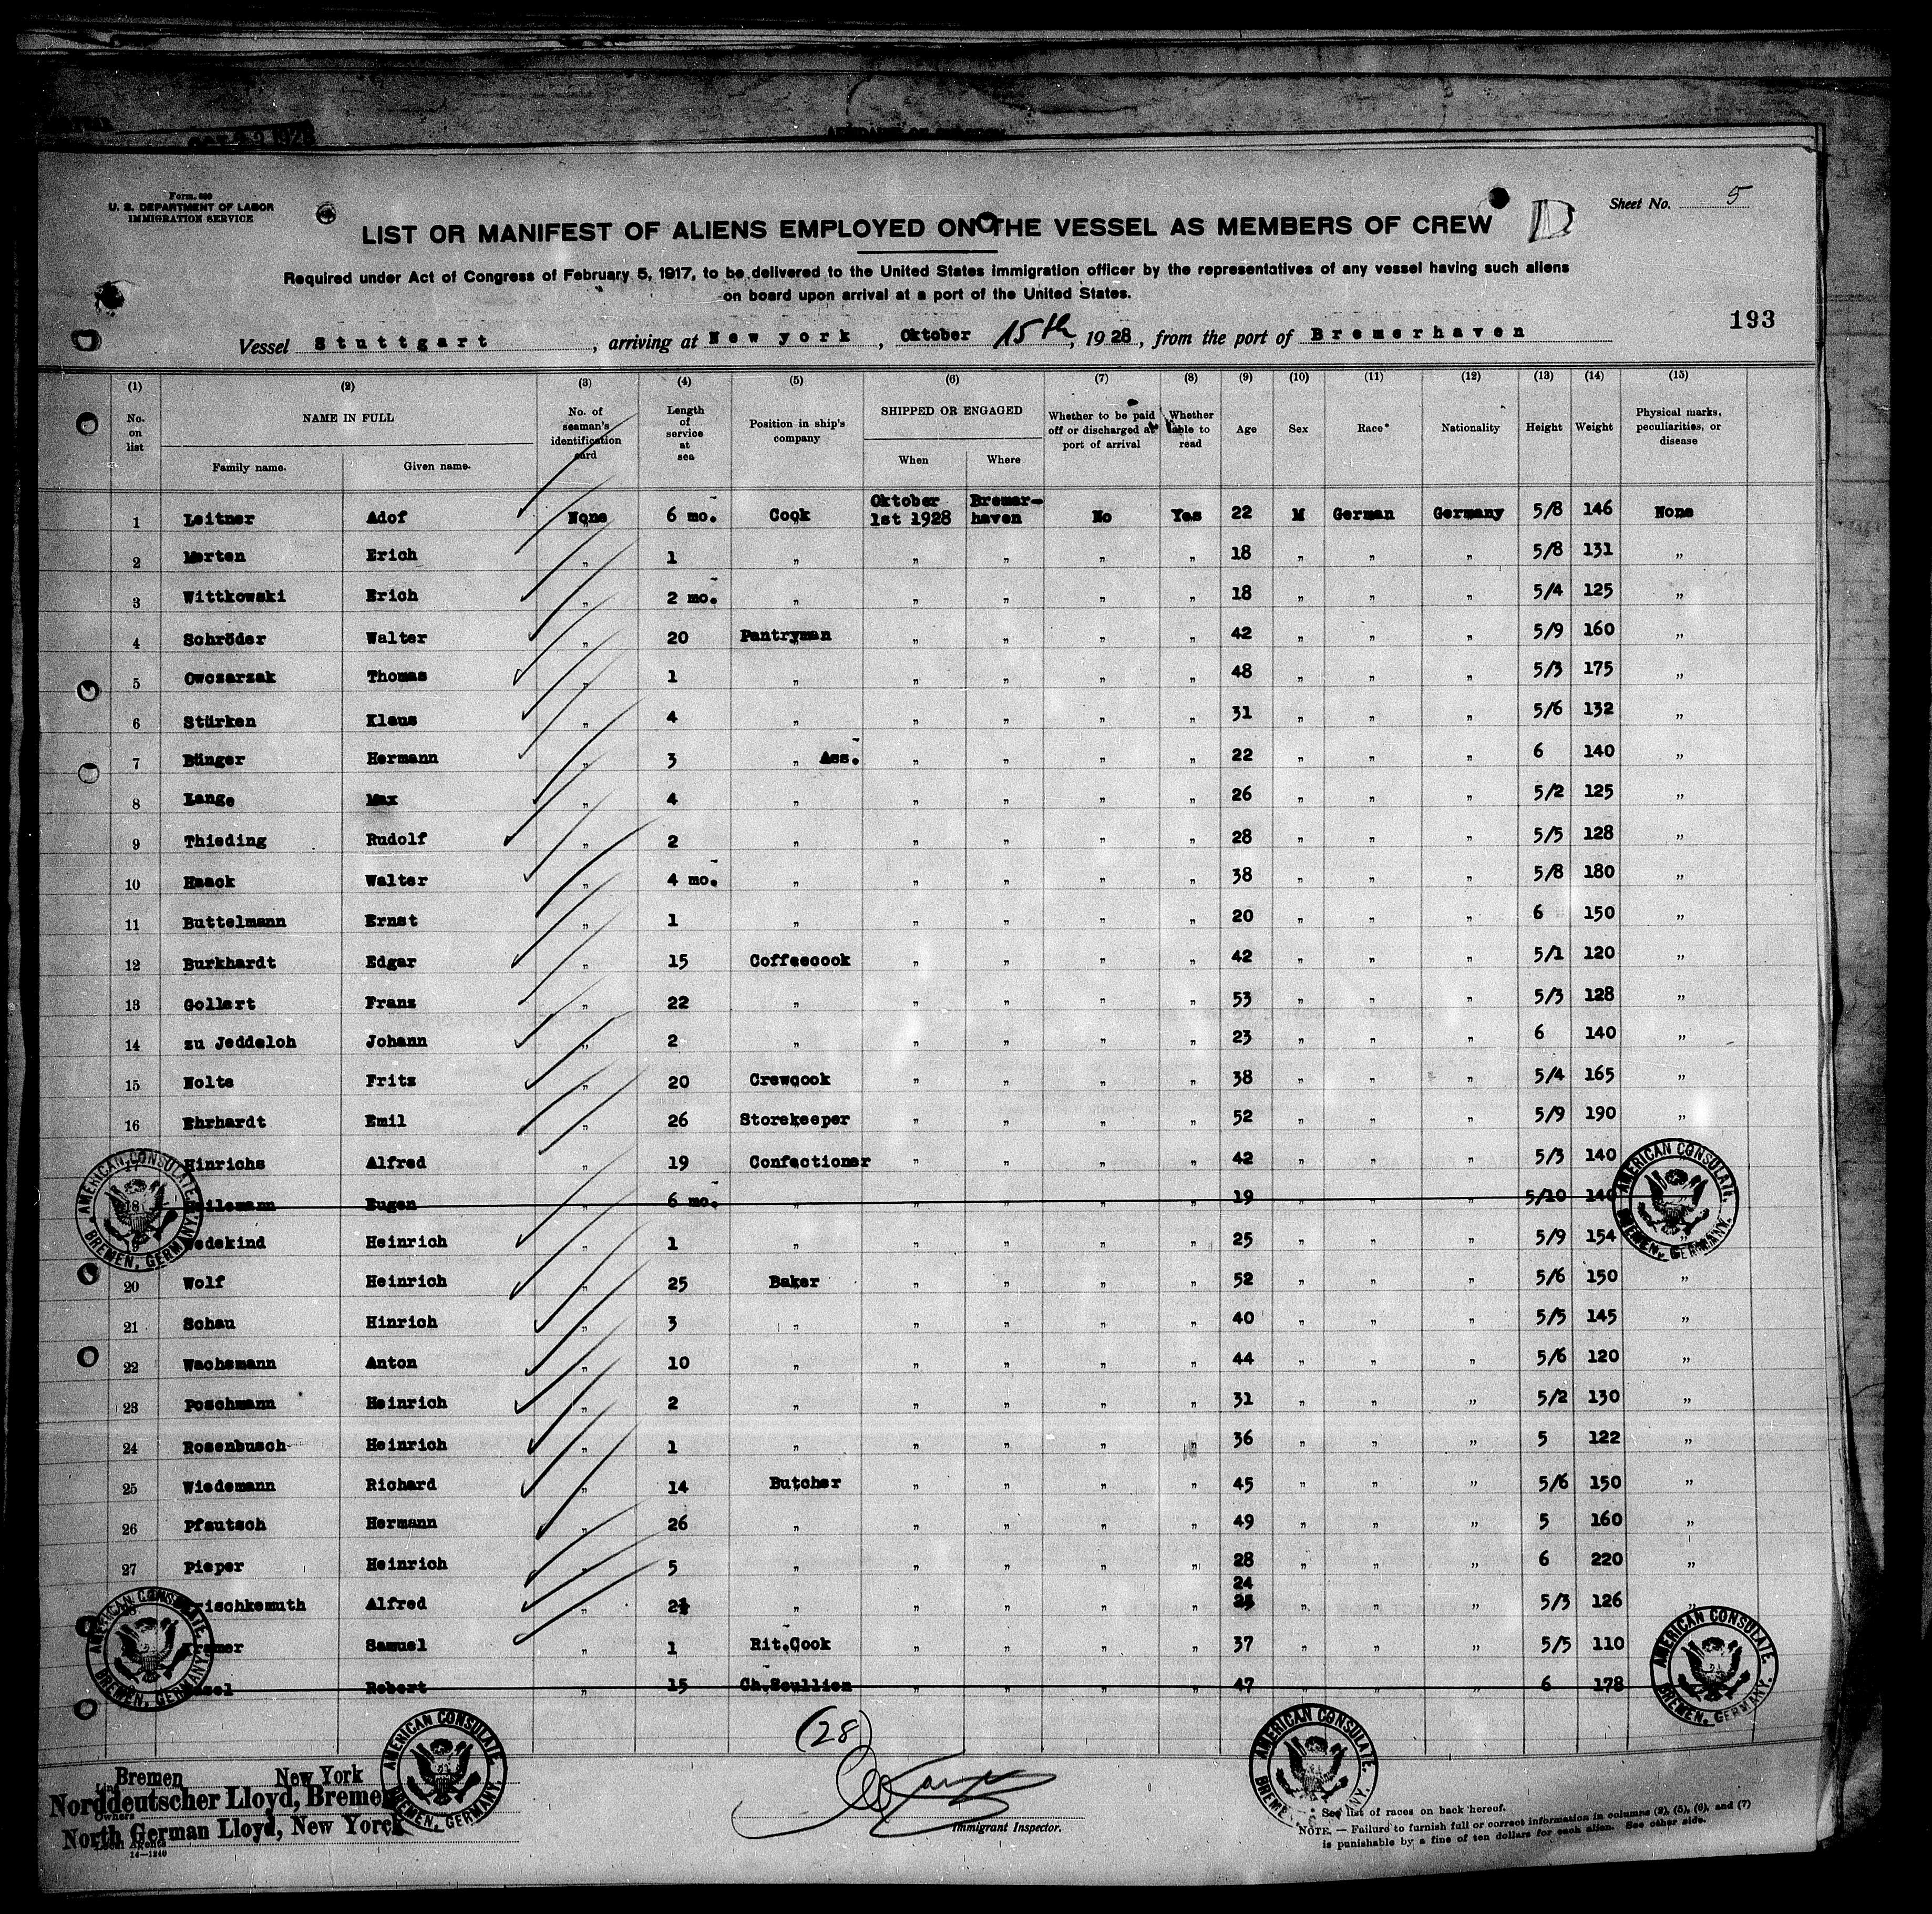 Form 689
U. S. DEPARTMENT OF LABOR
IMMIGRATION SERVICE
Sheet No. 5
LIST OR MANIFEST OF ALIENS EMPLOYED ON THE VESSEL AS MEMBERS OF CREW D
Required under Act of Congress of February 5, 1917, to be delivered to the United States immigration officer by the representatives of any vessel having such aliens
on board upon arrival at a port of the United States.
193
Vessel Stuttgart, arriving at New york, Oktober 15th, 1928, from the port of Bremerhaven
(1) (2) (3) (4) (5) (6) (7) (8) (9) (10) (11) (12) (13) (14) (15)
No. on list NAME IN FULL Family name. Given name. No. of seaman's identification card Length of service at sea Position in ship's company SHIPPED OR ENGAGED When Where Whether to be paid off or discharged at port of arrival Whether able to read Age Sex Race* Nationality Height Weight Physical marks, peculiarities, or disease
1 Leitner Adof None 6 mo. Cook Oktober 1st 1928 Bremer-haven No Yes 22 M German Germany 5/8 146 None
2 Merten Erich „ 1 „ „ „ „ „ 18 „ „ „ 5/8 131 „
3 Wittkowski Erich „ 2 mo. „ „ „ „ „ 18 „ „ „ 5/4 125 „
4 Schröder Walter „ 20 Pantryman „ „ „ „ 42 „ „ „ 5/9 160 „
5 Owczarzak Thomas „ 1 „ „ „ „ „ 48 „ „ „ 5/3 175 „
6 Stürken Klaus „ 4 „ „ „ „ „ 31 „ „ „ 5/6 132 „
7 Bünger Hermann „ 3 „ Ass. „ „ „ „ 22 „ „ „ 6 140 „
8 Lange Max „ 4 „ „ „ „ „ 26 „ „ „ 5/2 125 „
9 Thieding Rudolf „ 2 „ „ „ „ „ 28 „ „ „ 5/5 128 „
10 Haack Walter „ 4 mo. „ „ „ „ „ 38 „ „ „ 5/8 180 „
11 Buttelmann Ernst „ 1 „ „ „ „ „ 20 „ „ „ 6 150 „
12 Burkhardt Edgar „ 15 Coffeecook „ „ „ „ 42 „ „ „ 5/1 120 „
13 Gollert Franz „ 22 „ „ „ „ „ 53 „ „ „ 5/3 128 „
14 zu Jeddeloh Johann „ 2 „ „ „ „ „ 23 „ „ „ 6 140 „
15 Nolte Fritz „ 20 Crewcook „ „ „ „ 38 „ „ „ 5/4 165 „
16 Ehrhardt Emil „ 26 Storekeeper „ „ „ „ 52 „ „ „ 5/9 190 „
17 Hinrichs Alfred „ 19 Confectioner „ „ „ „ 42 „ „ „ 5/3 140
18 Eugen „ 6 mo. „ „ „ „ „ 19 „ „ „ 5/10 140
Wedekind Heinrich „ 1 „ „ „ „ „ 25 „ „ „ 5/9 154 „
20 Wolf Heinrich „ 25 Baker „ „ „ „ 52 „ „ „ 5/6 150 „
21 Schau Hinrich „ 3 „ „ „ „ „ 40 „ „ „ 5/5 145 „
22 Wachsmann Anton „ 10 „ „ „ „ „ 44 „ „ „ 5/6 120 „
23 Poschmann Heinrich „ 2 „ „ „ „ „ 31 „ „ „ 5/2 130 „
24 Rosenbusch Heinrich „ 1 „ „ „ „ „ 36 „ „ „ 5 122 „
25 Wiedemann Richard „ 14 Butcher „ „ „ „ 45 „ „ „ 5/6 150 „
26 Pfautsch Hermann „ 26 „ „ „ „ „ 49 „ „ „ 5 160 „
27 Pieper Heinrich „ 5 „ „ „ „ „ 28 „ „ „ 6 220 „
Alfred „ 2½ „ „ „ „ „ 24 „ „ „ 5/3 126 „
Kramer Samuel „ 1 Rit.Cook „ „ „ „ 37 „ „ „ 5/5 110
Robert „ 15 Ch.Scullion „ „ „ „ 47 „ „ „ 6 178
AMERICAN CONSULATE. BREMEN, GERMANY.
AMERICAN CONSULATE. BREMEN, GERMANY.
AMERICAN CONSULATE. BREMEN, GERMANY.
AMERICAN CONSULATE. BREMEN, GERMANY.
AMERICAN CONSULATE. BREMEN, GERMANY.
AMERICAN CONSULATE. BREMEN, GERMANY.
(28)
Bremen New York
Line
Norddeutscher Lloyd, Bremen
Owners
North German Lloyd, New York
Local Agents
14—1240
Immigrant Inspector.
* See list of races on back hereof.
NOTE. — Failure to furnish full or correct information in columns (2), (5), (6), and (7)
is punishable by a fine of ten dollars for each alien. See other side.